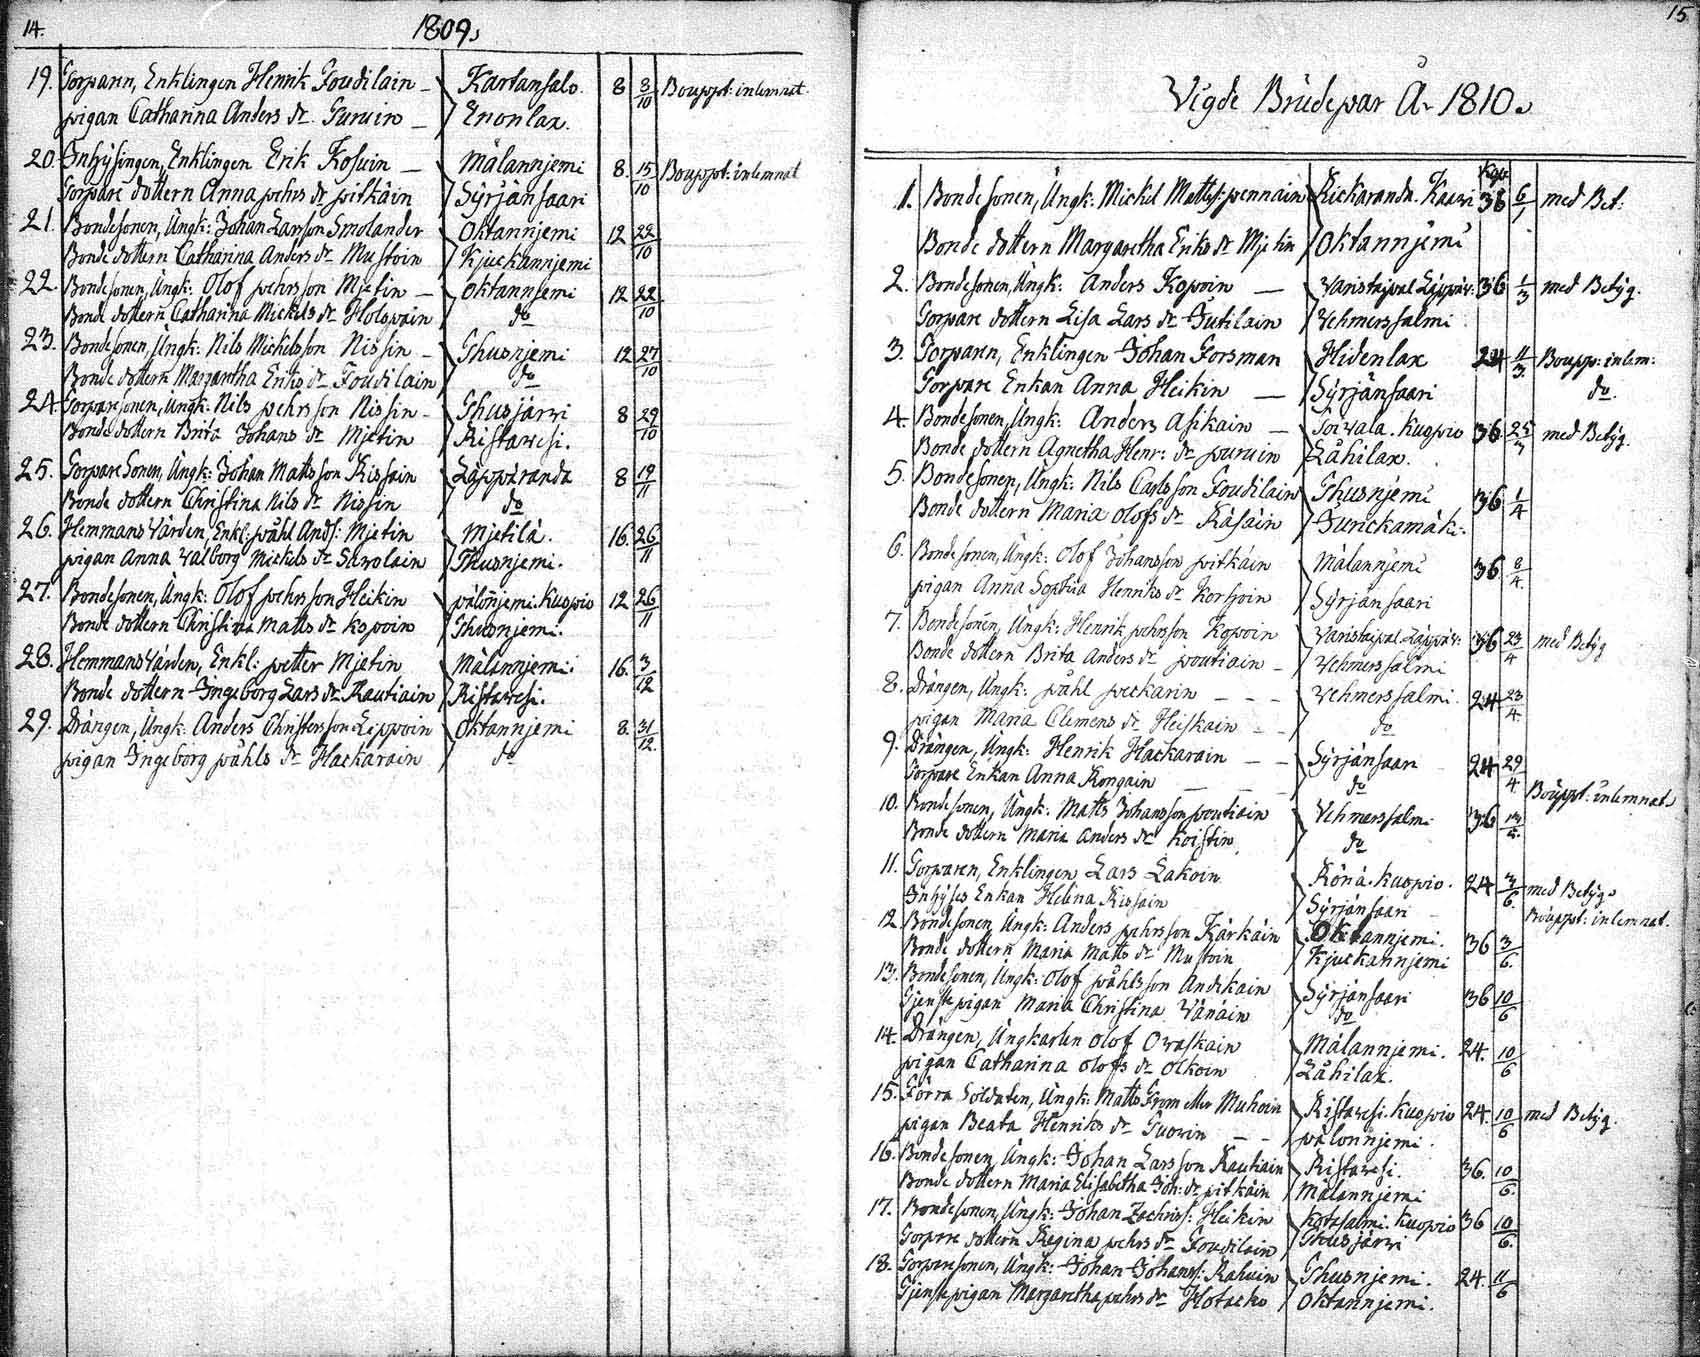 14.
1809.
19. Torparen, Enklingen Henrik Toudilain – Kartansalo. 8 8/10 Bouppt: inlemnat
pigan Catharina Anders dr Turuin – Enonlax.
20. Inhysingen, Enklingen Erik Kosuin – Målannjemi 8. 15/10 Bouppt: inlemnat
Torpare dottern Anna pehrs dr pitkäin Syrjänsaari
21. Bondesonen, Ungk: Johan Larsson Smolander Oktannjemi 12 22/10
Bonde dottern Catharina Anders dr Mustoin Kjuckannjemi
22. Bondesonen, Ungk: Olof pehrsson Mjetin – Oktannjemi 12 22/10
Bonde dottern Catharina Mickels dr Holopain do
23. Bondesonen, Ungk: Nils Mickelsson Nissin – Thusnjemi 12 27/10
Bonde dottern Margaretha Eriks dr Toudilain do
24. Torparesonen, Ungk: Nils pehrsson Nissin – Thusjärwi 8 29/10
Bonde dottern Brita Johans dr Mjetin Ristawesi.
25. Torpare Sonen, Ungk: Johan Mattsson Rissain Läppäranda 8 19/11
Bonde dottern Christina Nils dr Nissin do
26. Hemmans Värden, Enkl: påhl Ands: Mjetin Mjetilä. 16. 26/11
pigan Anna Valborg Mickels dr Sawolain Thusnjemi.
27. Bondesonen, Ungk: Olof pehrsson Heikin pälonjemi. Kuopio 12 26/11
Bonde dottern Christina Matts dr Kopoin Thusnjemi.
28. Hemmans Värden, Enkl: petter Mjetin Målannjemi 16. 3/12
Bonde dottern Ingeborg Lars dr Rautiain Ristawesi.
29. Drängen, Ungk: Anders Christersson Leppoin Oktannjemi 8. 31/12.
pigan Ingeborg påhls dr Hackarain do
15
Vigde Brudepar År 1810.
1. Bonde sonen, Ungk: Mickel Matts: pennain Rickaranda. Kaawi 36 6/1 med Bet:
Bonde dottern Margaretha Eriks dr Mjetin Oktannjemi
2. Bondesonen, Ungk: Anders Kopoin – Varistaipal Läppäv: 36 1/3 med Betyg.
Torpare dottern Lisa Lars dr Jutilain Vehmerssalmi
3. Torparen, Enklingen Johan Forsman Hidenlax 24 11/3. Boupp: inlem:
Torpare Enkan Anna Heikin – Syrjänsaari do.
4. Bondesonen, Ungk: Anders Asikain – Toiwala. Kuopio 36 25/3 med Betyg.
Bonde dottern Agnetha Henr: dr puruin Låhilax.
5. Bondesonen, Ungk: Nils Carlsson Toudilain Thusnjemi 36 1/4
Bonde dottern Maria Olofs dr Räsäin Jurickamäki.
6. Bondesonen, Ungk: Olof Johansson pitkäin Målannjemi 36 8/4.
pigan Anna Sophia Henriks dr Korhoin Syrjänsaari
7. Bondesonen, Ungk: Henrik pehrsson Kopoin Varistaipal Läppäv: 36 23/4 med Betyg
Bonde dottern Brita Anders dr poutiain – Vehmerssalmi
8. Drängen, Ungk: påhl peckarin – – – Vehmerssalmi. 24 23/4.
pigan Maria Clemens dr Heiskain – – do
9. Drängen, Ungk: Henrik Hackarain – – Syrjänsaari 24 29/4
Torpare Enkan Anna Kongain – – – do Bouppt: inlemnat.
10. Bondesonen, Ungk: Matts Johansson poutiain Vehmerssalmi 36
Bonde dottern Maria Anders dr Koistin do
11. Torparen, Enklingen Lars Lakoin Rönä. Kuopio. 24 3/6. med Betyg.
Inhyses Enkan Helena Rissain Syrjänsaari Bouppt: inlemnat.
12. Bondesonen, Ungk: Anders pehrsson Kärkäin Oktannjemi. 36 3/6.
Bonde dottern Maria Matts dr Mustoin Kjuckannjemi
13. Bondesonen, Ungk: Olof påhlsson Andikain Syrjänsaari 36 10/6
Tjenste pigan Maria Christina Vänäin do
14. Drängen, Ungkarlen Olof Owaskain Målannjemi. 24. 10/6
pigan Catharina Olofs dr Olkoin Låhilax.
15. Förra Soldaten, Ungk: Matts From eller Muhoin Ristawesi. Kuopio 24. 10/6 med Betyg.
pigan Beata Henriks dr Tuowin – – pälonnjemi.
16. Bondesonen, Ungk: Johan Larsson Rautiain Ristawesi. 36. 10/6.
Bonde dottern Maria Elisabetha Joh: dr pitkäin Målannjemi
17. Bondesonen, Ungk: Johan Zachriss: Heikin Kotasalmi. Kuopio 36 10/6.
Torpare dottern Regina pehrs dr Toudilain Thusjärwi
18. Torparesonen, Ungk: Johan Johanss: Rahuin Thusnjemi. 24. 11/6
Tjenstepigan Margaretha pehrs dr Hotacko Oktannjemi.